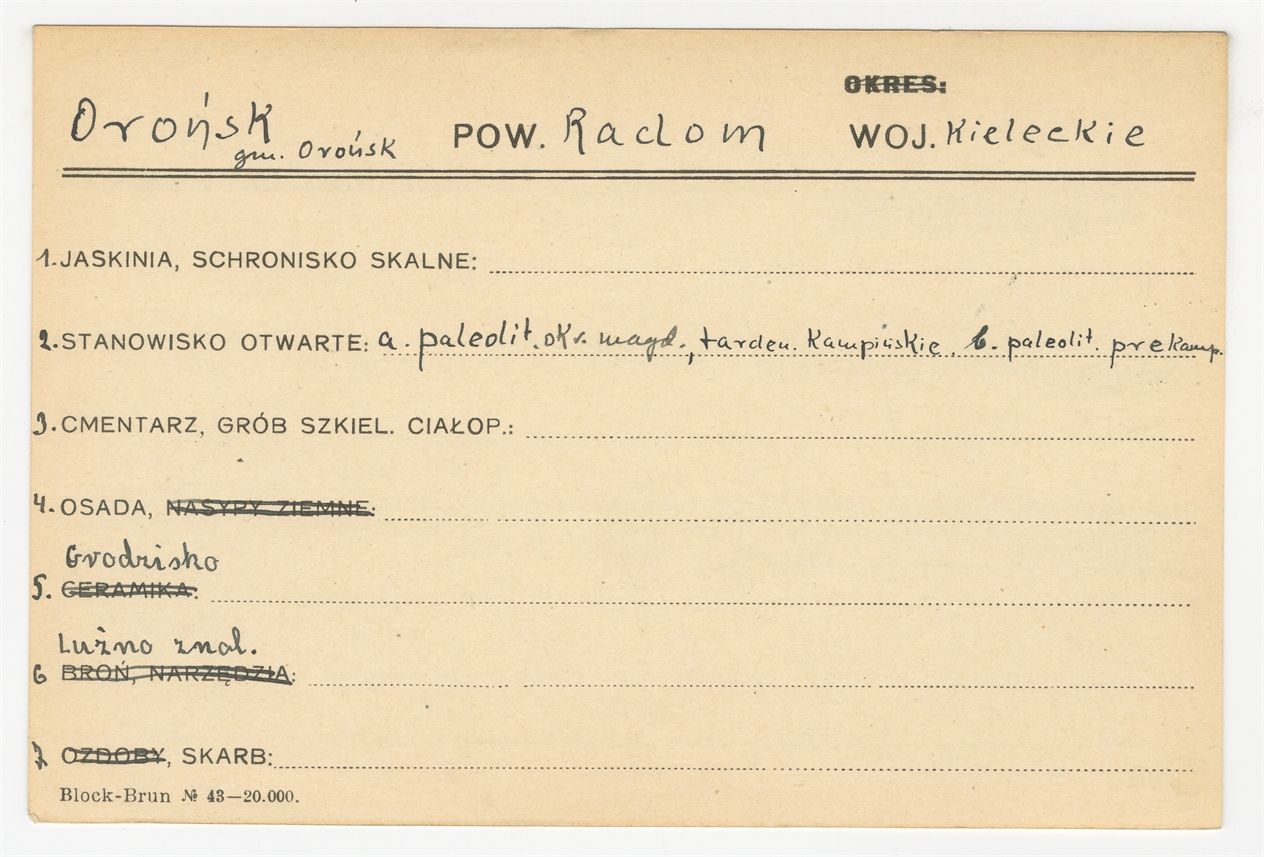 OKRES:
Orońsk POW. Radom WOJ. Kieleckie
gm. Orońsk
1. JASKINIA, SCHRONISKO SKALNE:
2. STANOWISKO OTWARTE: a. paleolit. okr. magd., tarden. Kampińskie b. paleolit. prekamp.
3. CMENTARZ, GRÓB SZKIEL. CIAŁOP.:
4. OSADA, NASYPY ZIEMNE:
Grodzisko
5. CERAMIKA:
Luźno znal.
6 BROŃ, NARZĘDZIA:
7 OZDOBY, SKARB:
Block-Brun № 43—20.000.